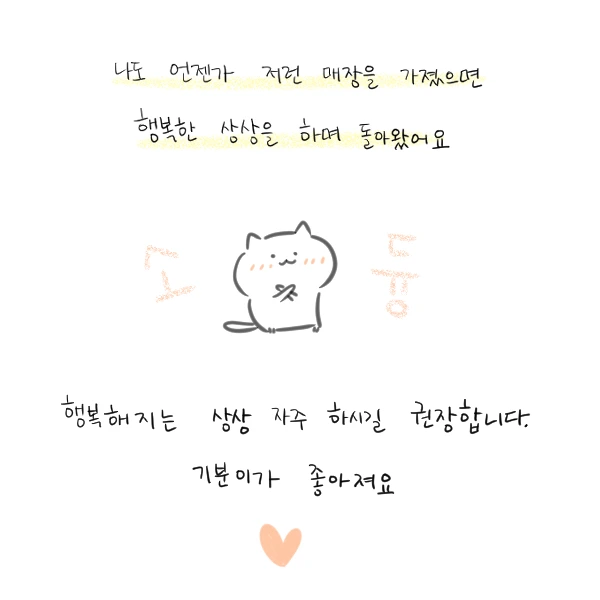 나도 언젠가 저런 매장을 가졌으면
행복한 상상을 하며 돌아왔어요
두둥
행복해지는 상상 자주 하시길 권장합니다.
기분이가 좋아져요